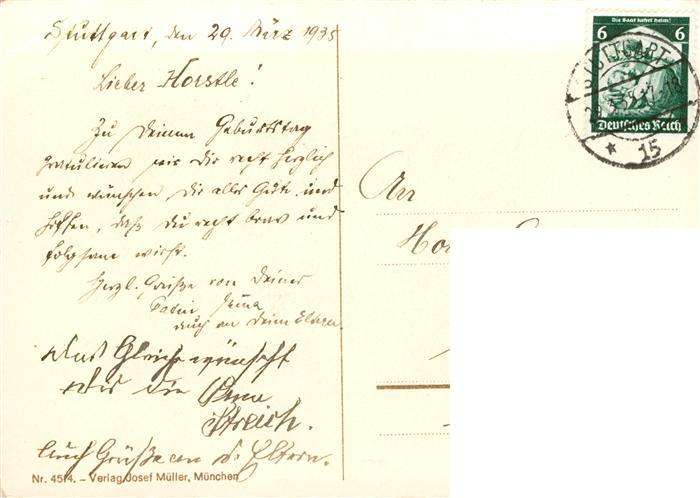 Stuttgart, den 29. März 1935
Lieber Horstle!
Zu Deinem Geburtstag
gratulieren wir Dir recht herzlich
und wünschen Dir alles Gute und
hoffen, daß Du recht brav und
folgsam wirst.
Herzl. Grüße von Deiner
auch an Deine Eltern
Das Gleiche wünscht
Streich.
Auch Grüße an d. Eltern.
Nr. 4514. – Verlag Josef Müller, München
Die Saar kehrt heim!
6 6
Deutsches Reich
STUTTGART
* 15
An